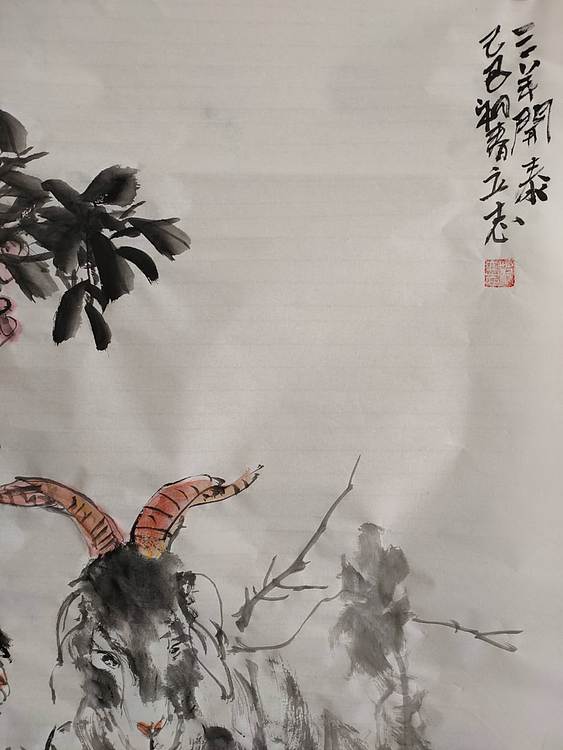 三羊開泰
己丑初春立志